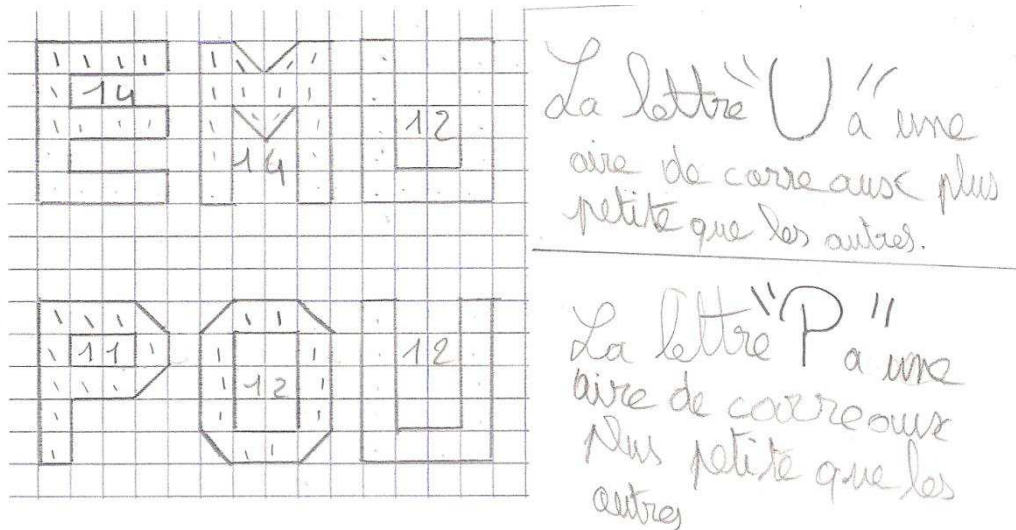 14
14
12
La lettre "U" a une
aire de carreaux plus
petite que les autres.
11
12
12
La lettre "P" a une
aire de carreaux
plus petite que les
autres